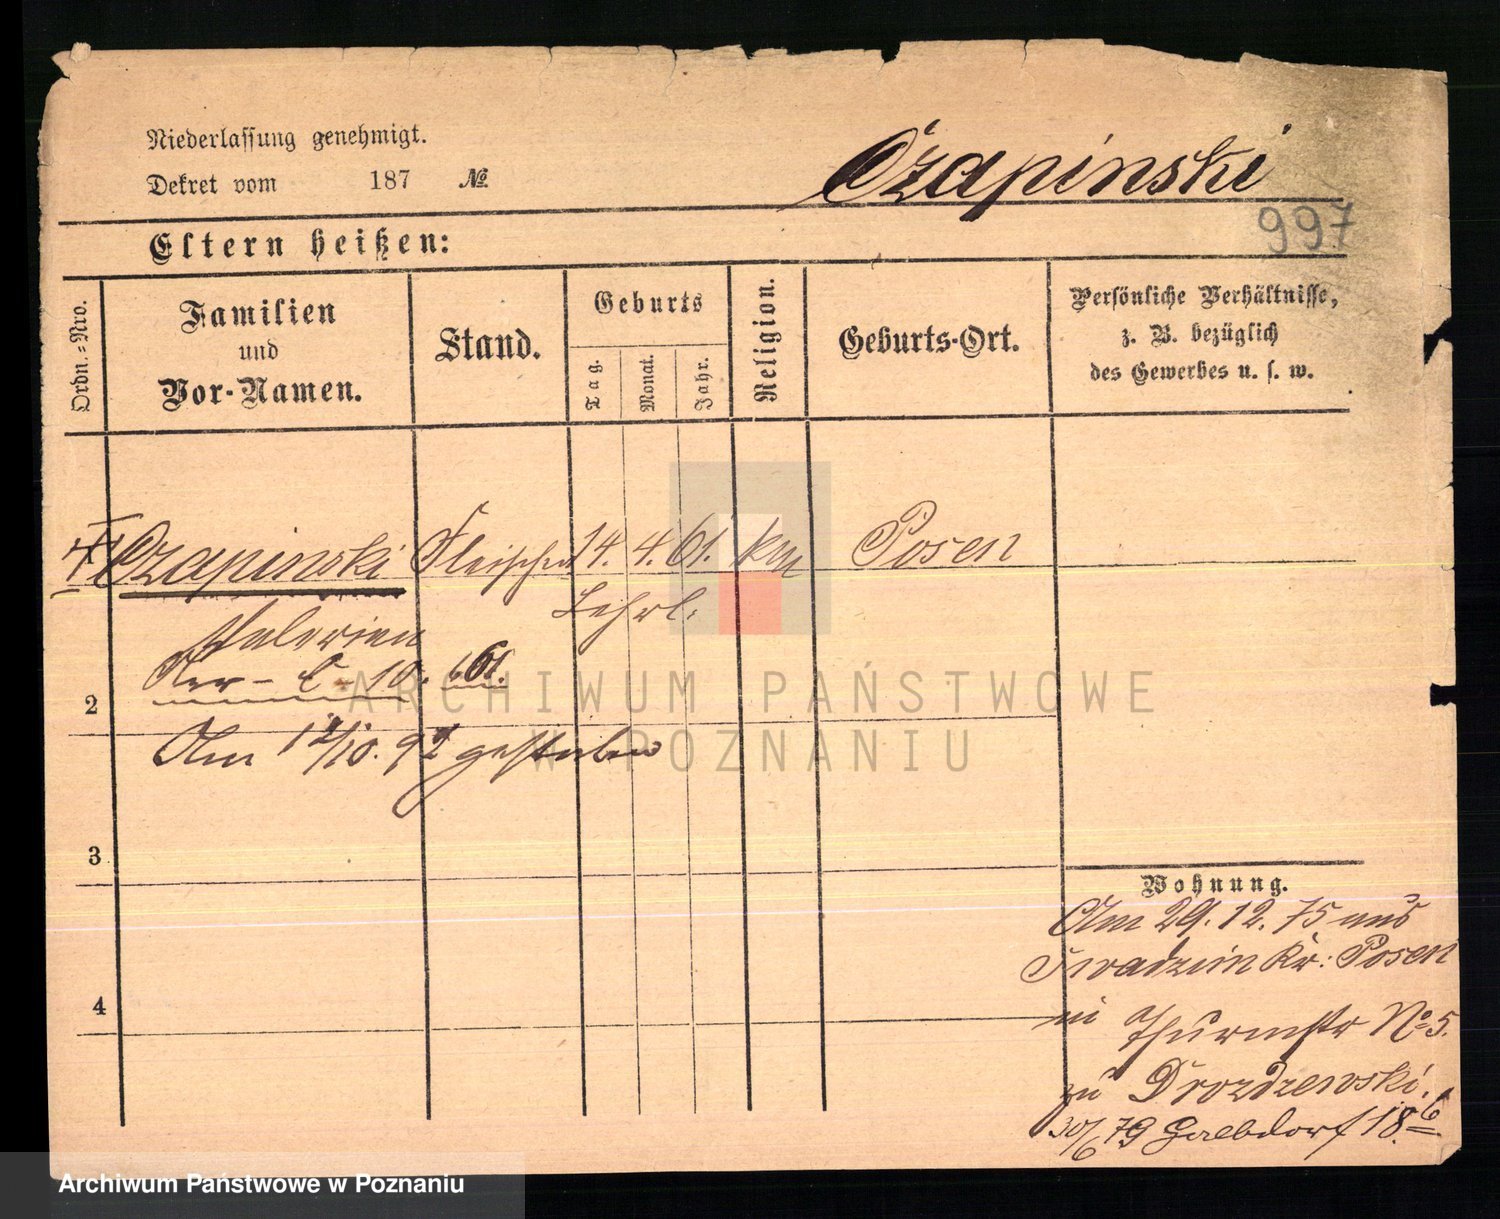 Niederlassung genehmigt.
Dekret vom 187 №
Czapinski
997
Eltern heißen:
Ordn.-Nro.
Familien
und
Vor-Namen.
Stand.
Geburts
Tag.
Monat.
Jahr.
Religion.
Geburts-Ort.
Persönliche Verhältnisse,
z. B. bezüglich
des Gewerbes u. s. w.
Czapinski Fleischer 14. 4. 61. Posen
Lehrl.
Valerian
10. 61.
2
Am 10. 92 gestorben
3
Wohnung.
Am 29. 12. 75 aus
Kr: Posen
4
in Thurmstr No 5.
zu Drozdzewski.
30/6 79 18
ARCHIWUM PAŃSTWOWE
W POZNANIU
Archiwum Państwowe w Poznaniu